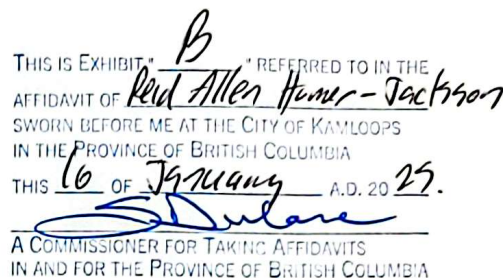 THIS IS EXHIBIT " B " REFERRED TO IN THE
AFFIDAVIT OF Reid Allen Humer-Jackson
SWORN BEFORE ME AT THE CITY OF KAMLOOPS
IN THE PROVINCE OF BRITISH COLUMBIA
THIS 16 OF January A.D. 20 25.
A COMMISSIONER FOR TAKING AFFIDAVITS
IN AND FOR THE PROVINCE OF BRITISH COLUMBIA